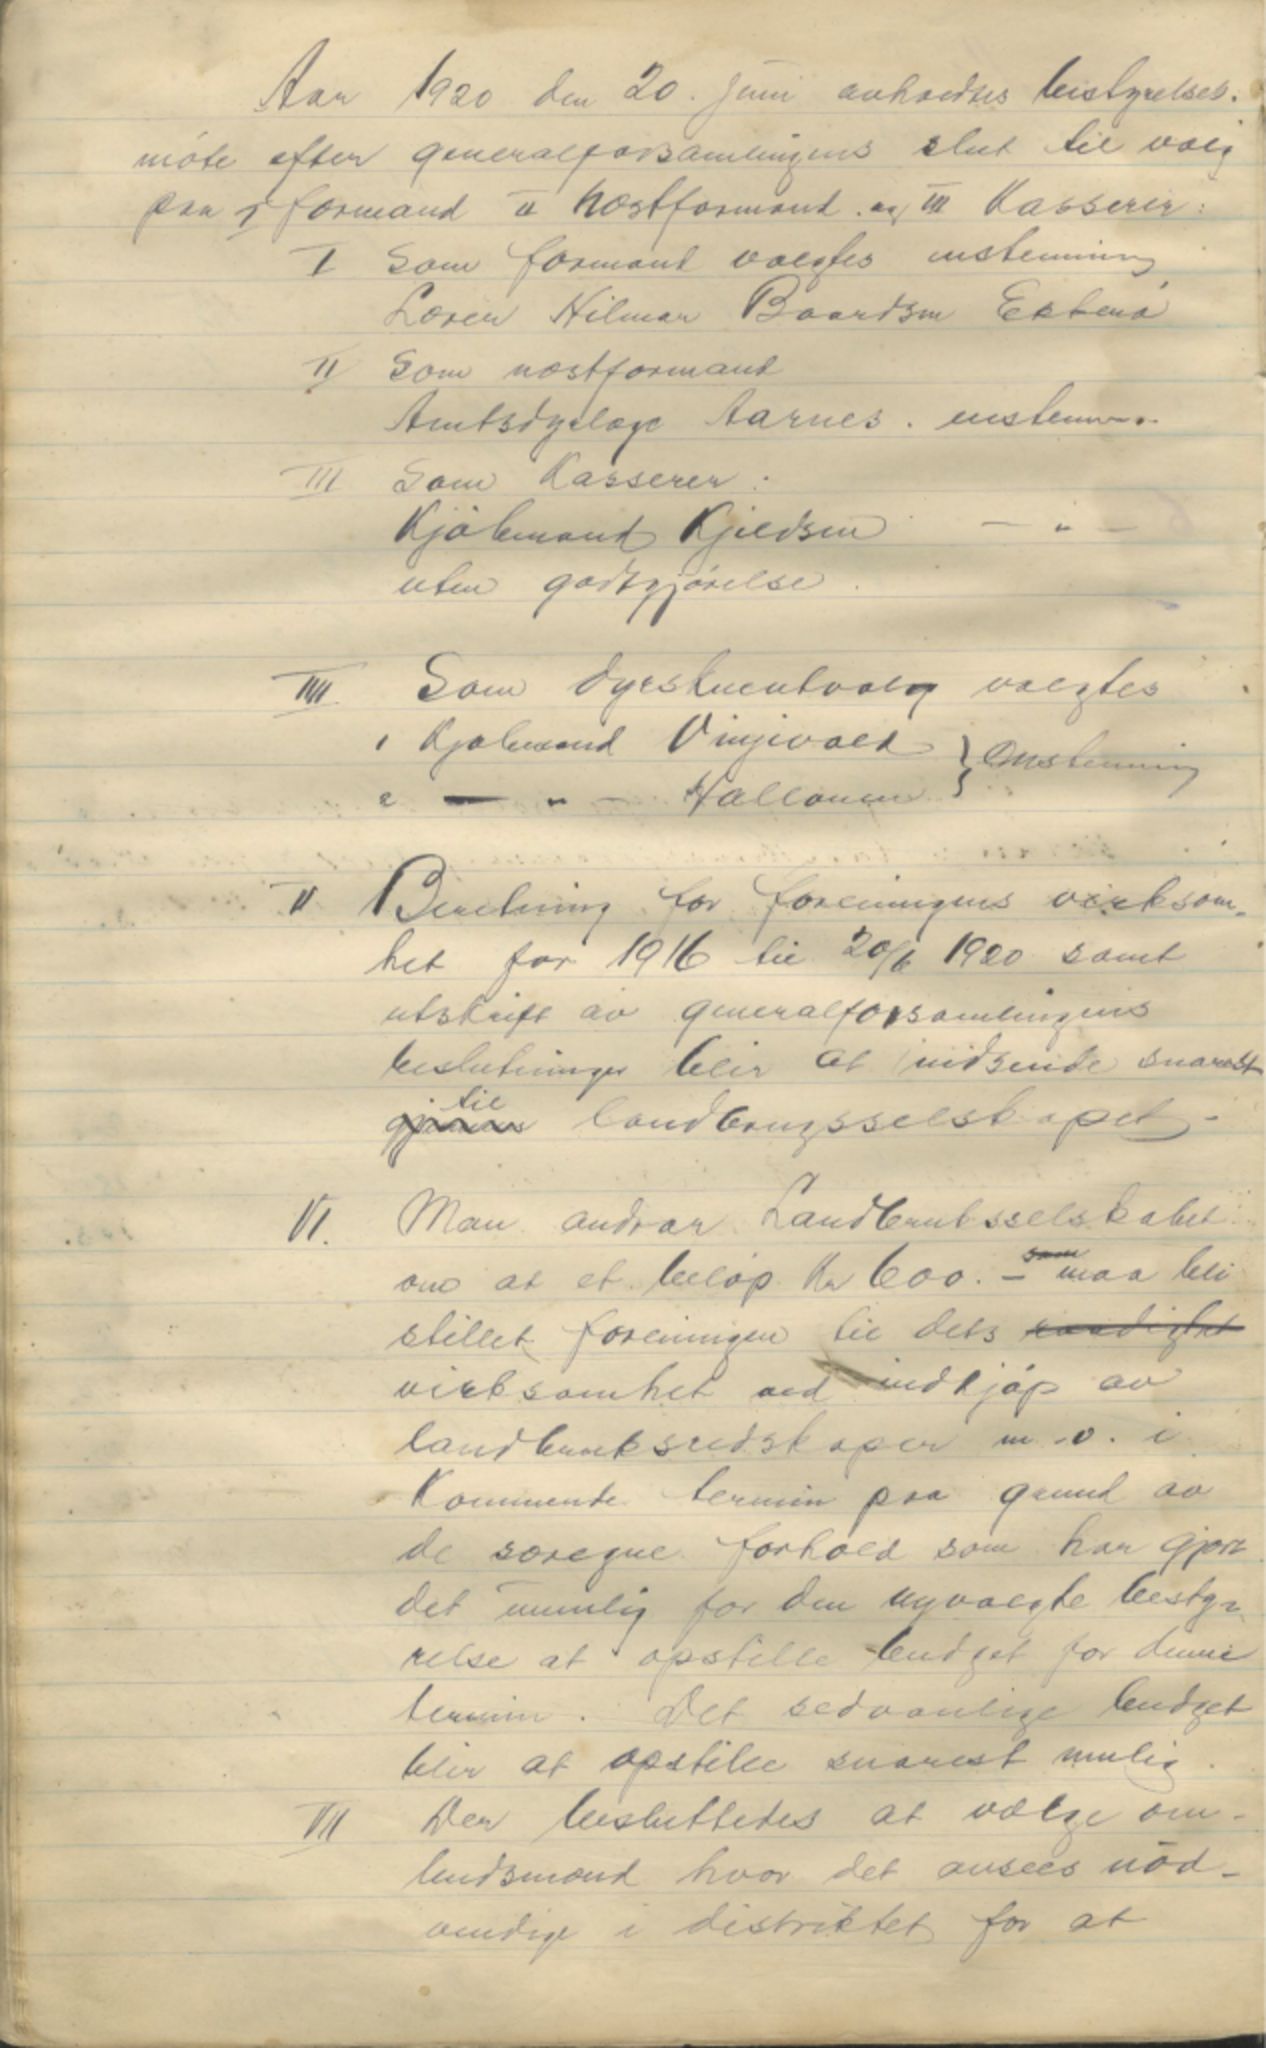 Aar 1920 den 20. juni avholdtes bestyrelses.
møte efter generalforsamlingens slut til valg
paa I formand II næstformand og III Kasserer:
I Som formand valgtes enstemmig
Lærer Hilmar Baardsen
II Som næstformand
Amtsdyrlæge Aarnes. enstem.
III Som Kasserer:
Kjøbmand Kjeldsen — " —
uten godtgjørelse.
IIII Som dyrskuentvalg valgtes
1 Kjøbmand Vinjevold } Enstemmig
2 — " —
V Beretning for foreningens virksom-
het for 1916 til 20/6 1920 samt
utskrift av generalforsamlingens
beslutninger blir at indsende snarest
til landbrugsselskapet.
VI. Man andrar Landbruksselskabet
om at et beløp Kr 600.- som maa bli
stillet foreningen til dets raadighet
virksomhet ved indkjøp av
landbruksredskaper m.v. i
Kommende termin paa grund av
de særegne forhold som har gjort
det umulig for den nyvalgte besty-
relse at opstille budget for denne
termin. Det sedvanlige budget
blir at opstille snarest mulig.
VII Der besluttedes at vælge om-
budsmænd hvor det ansees nød-
vendige i distriktet for at